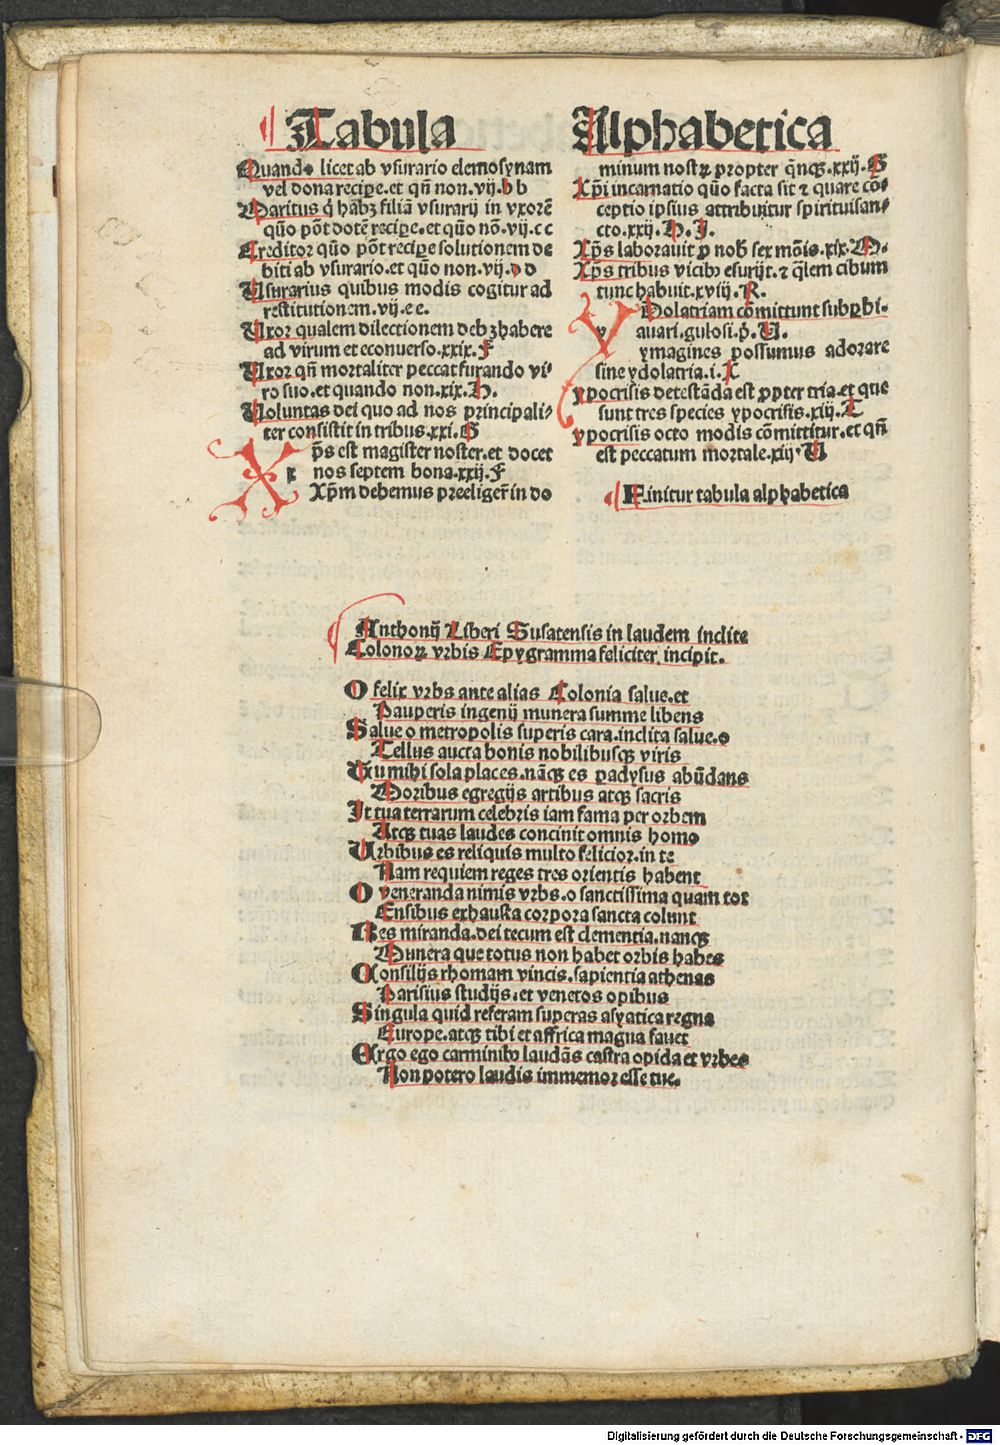 Tabula Alphabetica
Quando licet ab vsurario elemosynam
vel dona recipe.et qn̄ non.vij.b b
Maritus q̇ habꝫ filiā vsurarij in vxorē
quō pōt dotē recipe.et quō nō.vij.c c
Creditor quō pōt recipe solutionem de
biti ab vsurario.et quō non.vij.d d
Usurarius quibus modis cogitur ad
restitutionem.vij.e e.
Uxor qualem dilectionem debꝫ habere
ad virum et econuerso.xxix.F
Uxor qn̄ mortaliter peccat furando vi⸗
ro suo.et quando non.xix.H.
Voluntas dei quo ad nos principali⸗
ter consistit in tribus.xxi.G
Xp̄s est magister noster.et docet
x nos septem bona.xxij.F
Xp̄m debemus preeliger̄ in do
minum nostꝝ propter q̄nqꝫ.xxij.G
Xp̄i incarnatio quō facta sit ⁊ quare cō⸗
ceptio ipsius attribuitur spirituisan⸗
cto.xxij.H.I.
Xp̄s laborauit ꝓ nob̄ sex mōis.xix.M.
Xp̄s tribus vicibꝰ esurijt.⁊ q̄lem cibum
tunc habuit.xviij.R.
Ydolatriam cōmittunt subꝑbi.
y auari.gulosi.p̄.U.
ymagines possumus adorare
sine ydolatria.i.X
ypocrisis detestāda est ꝓpter tria.et que
sunt tres species ypocrisis.xiij.T
ypocrisis octo modis cōmittitur.et qn̄
est peccatum mortale.xiij.U
Finitur tabula alphabetica
Anthonij Liberi Susatensis in laudem inclite
Colonoꝝ vrbis Epygramma feliciter incipit.
O felix vrbs ante alias Colonia salue.et
Pauperis ingenij munera summe libens
Salue o metropolis superis cara.inclita salue.o
Tellus aucta bonis nobilibusqꝫ viris
Tu mihi sola places.nāqꝫ es padysus abūdans
Moribus egregijs artibus atqꝫ sacris
It tua terrarum celebris iam fama per orbem
Atqꝫ tuas laudes concinit omnis homo
Urbibus es reliquis multo felicior.in te
Nam requiem reges tres orientis habent
O veneranda nimis vrbs.o sanctissima quam tot
Ensibus exhausta corpora sancta colunt
Res miranda.dei tecum est clementia.nanqꝫ
Munera que totus non habet orbis habes
Consilijs rhomam vincis.sapientia athenas
Parisius studijs.et venetos opibus
Singula quid referam superas asyatica regna
Europe.atqꝫ tibi et affrica magna fauet
Ergo ego carminibꝰ laudās castra opida et vrbes
Non potero laudis immemor esse tue.
Digitalisierung gefördert durch die Deutsche Forschungsgemeinschaft - DFG